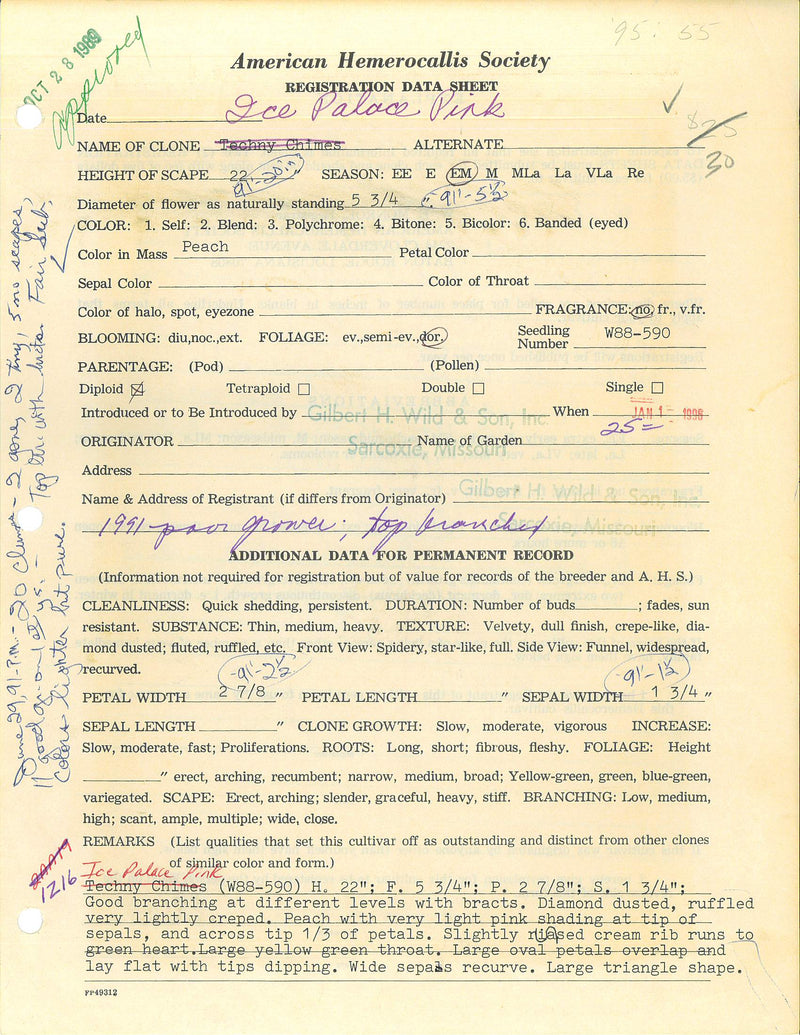 '95: 55
OCT 28 1989
Approved
American Hemerocallis Society
REGISTRATION DATA SHEET
Ice Palace Pink
Date
✓ $25
30
NAME OF CLONE Techny Chimes ALTERNATE
HEIGHT OF SCAPE 22 91-20 in" SEASON: EE E EM M MLa La VLa Re
Diameter of flower as naturally standing 5 3/4 ". 91'-5½
COLOR: 1. Self: 2. Blend: 3. Polychrome: 4. Bitone: 5. Bicolor: 6. Banded (eyed)
Color in Mass Peach Petal Color
Sepal Color Color of Throat
Color of halo, spot, eyezone FRAGRANCE: no, fr., v.fr.
BLOOMING: diu,noc.,ext. FOLIAGE: ev.,semi-ev.,dor. Seedling Number W88-590
PARENTAGE: (Pod) (Pollen)
Diploid ☒ Tetraploid ☐ Double ☐ Single ☐
Introduced or to Be Introduced by Gilbert H. Wild & Son, Inc. When JAN 1 - 1996
Sarcoxie, Missouri
25=
ORIGINATOR Name of Garden
Address
Name & Address of Registrant (if differs from Originator) Gilbert H. Wild & Son, Inc.
Sarcoxie, Missouri
1991-poor grower; top branched
ADDITIONAL DATA FOR PERMANENT RECORD
(Information not required for registration but of value for records of the breeder and A. H. S.)
CLEANLINESS: Quick shedding, persistent. DURATION: Number of buds; fades, sun
resistant. SUBSTANCE: Thin, medium, heavy. TEXTURE: Velvety, dull finish, crepe-like, dia-
mond dusted; fluted, ruffled, etc. Front View: Spidery, star-like, full. Side View: Funnel, widespread,
recurved.
-91-2½ 91'-1½
PETAL WIDTH 2 7/8 " PETAL LENGTH " SEPAL WIDTH 1 3/4 "
SEPAL LENGTH " CLONE GROWTH: Slow, moderate, vigorous INCREASE:
Slow, moderate, fast; Proliferations. ROOTS: Long, short; fibrous, fleshy. FOLIAGE: Height
" erect, arching, recumbent; narrow, medium, broad; Yellow-green, green, blue-green,
variegated. SCAPE: Erect, arching; slender, graceful, heavy, stiff. BRANCHING: Low, medium,
high; scant, ample, multiple; wide, close.
REMARKS (List qualities that set this cultivar off as outstanding and distinct from other clones
of similar color and form.)
Ice Palace Pink
Techny Chimes (W88-590) H. 22"; F. 5 3/4"; P. 2 7/8"; S. 1 3/4";
Good branching at different levels with bracts. Diamond dusted, ruffled
very lightly creped. Peach with very light pink shading at tip of
sepals, and across tip 1/3 of petals. Slightly riased cream rib runs to
green heart.Large yellow green throat. Large oval petals overlap and
lay flat with tips dipping. Wide sepals recurve. Large triangle shape.
FP49312
1216
June 29, 91-P.M.-20 Clumps - 2 gone, 2 tiny, 5 no scapes,
11 good on old ys. - Top brc with
Colors lighter but pure.